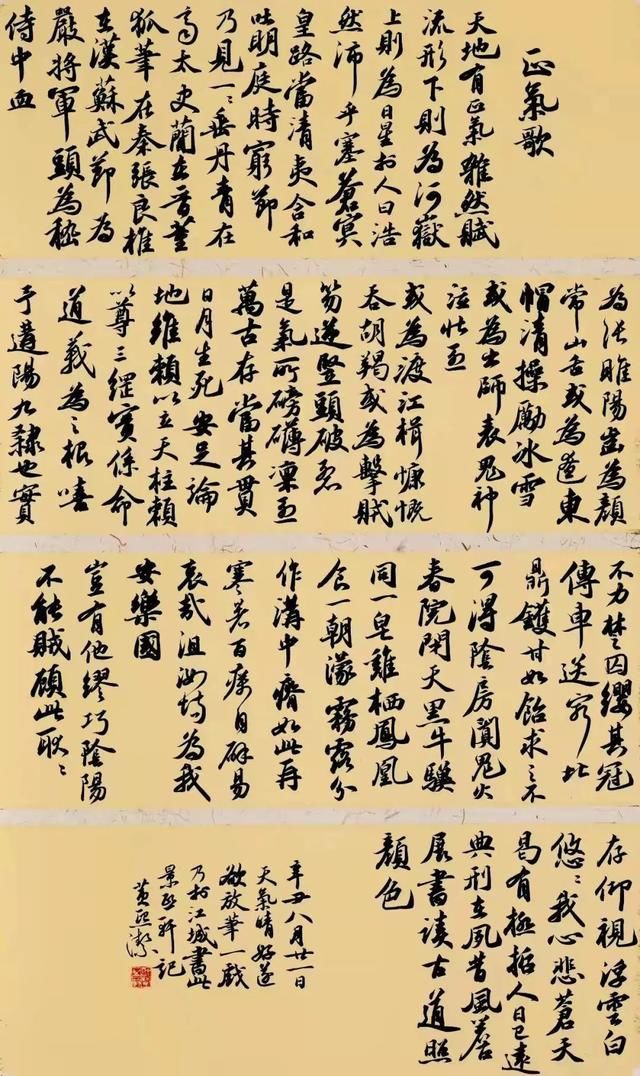 正氣歌
天地有正氣雜然賦
流形下則為河嶽
上則為日星於人曰浩
然沛乎塞蒼冥
皇路當清夷含和
吐明庭時窮節
乃見一〻垂丹青在
齊太史簡在晉董
狐筆在秦張良椎
在漢蘇武節為
嚴將軍頭為嵇
侍中血
為張睢陽齒為顏
常山舌或為遼東
帽清操勵冰雪
或為出師表鬼神
泣壯烈
或為渡江楫慷慨
吞胡羯或為擊賊
笏逆豎頭破裂
是氣所磅礴凜烈
萬古存當其貫
日月生死安足論
地維賴以立天柱賴
以尊三綱實係命
道義為之根嗟
予遘陽九隸也實
不力楚囚纓其冠
傳車送窮北
鼎鑊甘如飴求之不
可得陰房闃鬼火
春院閉天黑牛驥
同一皂雞栖鳳凰
食一朝濛霧露分
作溝中瘠如此再
寒暑百癘自辟易
哀哉沮洳場為我
安樂國
豈有他繆巧陰陽
不能賊顧此耿〻
存仰視浮雲白
悠〻我心悲蒼天
曷有極哲人日已遠
典刑在夙昔風簷
展書讀古道照
顏色
辛丑八月廿一日
天氣晴好遂
欲放筆一戲
乃於江城畫此
景軒記
黃熙潔